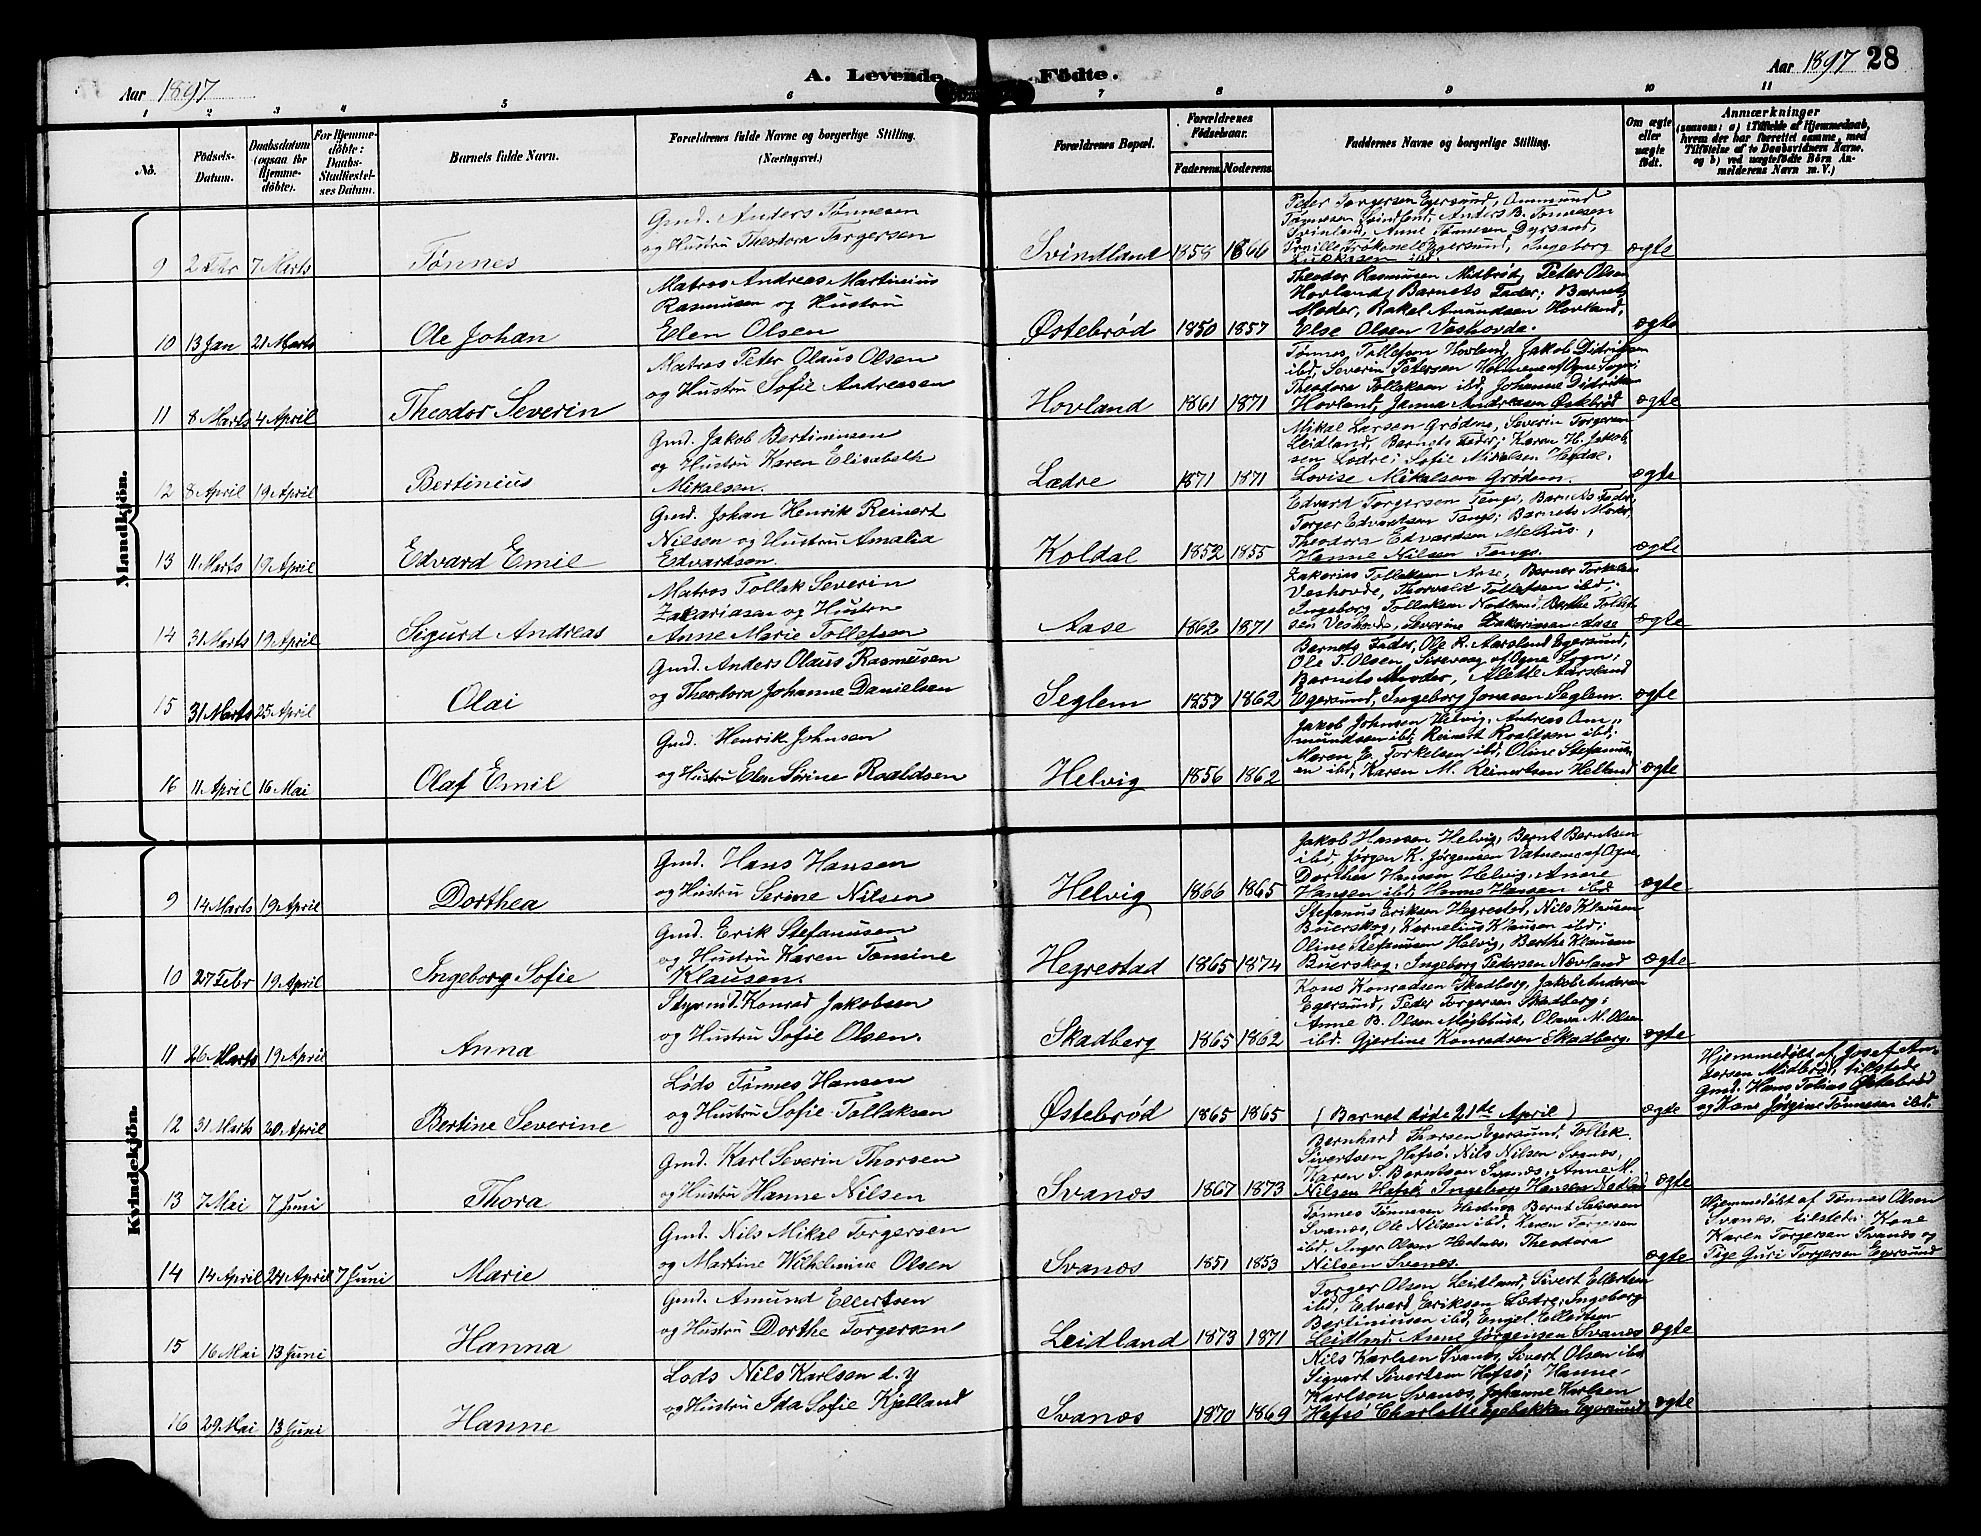 Aar 1897
A. Levende
Födte.
Aar 1897
28
1 2 3 4 5 6 7 8 9 10 11
No.
Födsels-Datum.
Daabsdatum (ogsaa for Hjemme-döbte).
For Hjemme-döbte: Daabs-Stadfæstel-ses Datum.
Barnets fulde Navn.
Forældrenes fulde Navne og borgerlige Stilling. (Næringsvei.)
Forældrenes Bopæl.
Forældrenes Födselsaar.
Faderens. Moderens.
Faddernes Navne og borgerlige Stilling.
Om ægte eller uægte födt.
Anmærkninger
(saasom: a) i Tilfælde af Hjemmedaab, hvem der har forrettet samme, med Tilföielse af to Daabsvidners Navne, og b) ved uægtefödte Börn An-melderens Navn m. V.)
Mandkjön.
9 2 Febr 7 Marts Tønnes
Gmd. Anders Tønnesen
og Hustru Theodora Torgersen
Svindland 1858 1866
Peter Torgersen Egersund, Ommund
Tønnesen Svindland, Anders B. Tønnesen
Svinland, Anne Tønnesen
Egersund, Ingeborg
ibd.
ægte
10 13 Jan 21 Marts Ole Johan
Matros Andreas Martinius
Rasmusen og Hustru
Elen Olsen
Østebrød 1850 1857
Theodor Rasmusen Midbrød, Peter Olsen
Hovland, Barnets Fader; Barnets
Moder, Rakel Amundsen Hovland,
Else Olsen Veshovda.
ægte
11 8 Marts 4 April Theodor Severin
Matros Peter Olaus Olsen
og Hustru Sofie Andreasen
Hovland 1861 1871
Tønnes Tollefsen Hovland, Jakob Didriksen
ibd, Severin Petersen af Ogne Sogn;
Theodora Tollaksen ibd, Johanne Didriksen
Hovland, Janna Andreasen Østebrød
ægte
12 8 April 19 April Bertinius
Gmd. Jakob Bertiniusen
og Hustru Karen Elisabeth
Mikalsen.
Lædre 1871 1871
Mikal Larsen Grødem, Severin Torgersen
Leidland, Barnets Fader; Karen H. Jakob-
sen Lædre; Sofie Mikalsen
Lovise Mikalsen Grødem.
ægte
13 11 Marts 19 April Edvard Emil
Gmd. Johan Henrik Reinert
Nilsen og Hustru Amalia
Edvardsen.
Koldal 1852 1855
Edvard Torgersen Tengs, Barnets Fader,
Torger Edvardsen Tengs; Barnets Moder,
Theodora Edvardsen Melhus,
Hanne Nilsen Tengs.
ægte
14 31 Marts 19 April Sigurd Andreas
Matros Tollak Severin
Zakariasen og Hustru
Anne Marie Tollefsen
Aase 1862 1871
Zakarias Tollaksen Aase, Berner Torkelsen
Veshovde, Thorvald Tollefsen ibd;
Ingeborg Tollaksen Nodland, Berthe Tollef-
sen Veshovde, Severine Zakariasen Aase
ægte
15 31 Marts 25 April Olai
Gmd. Anders Olaus Rasmusen
og Theodora Johanne Danielsen
Seglem 1857 1862
Barnets Fader, Ole R. Aarsland Egersund,
Ole T. Olsen, Sirevaag af Ogne Sogn;
Barnets Moder, Alette Aarsland
Egersund, Ingeborg Jonasen Seglem.
ægte
16 11 April 16 Mai Olaf Emil
Gmd. Henrik Johnsen
og Hustru Elen Sørine Roaldsen
Helvig 1856 1862
Jakob Johnsen Helvig, Andreas Om-
mundsen ibd, Reinert Roaldsen ibd;
Maren E. Torkelsen ibd, Oline Stefanus-
en ibd, Karen M. Reinertsen Helland
ægte
Kvindekjön.
9 14 Marts 19 April Dorthea
Gmd. Hans Hansen
og Hustru Serine Nilsen
Helvig 1866 1865
Jakob Hansen Helvig, Bernt Berntsen
ibd, Jørgen K. Jørgensen Vatnemo af Ogne,
Dorthea Hansen Helvig, Anne
Hansen ibd, Hanne Hansen ibd
ægte
10 27 Febr 19 April Ingeborg Sofie
Gmd. Erik Stefanusen
og Hustru Karen Tomine
Klausen.
Hegrestad 1865 1874
Stefanus Eriksen Hegrestad, Nils Klausen
Buerskog, Kornelius Klausen ibd;
Oline Stefanusen Helvig, Berthe Klausen
Buerskog, Ingeborg Pedersen Nævland
ægte
11 26 Marts 19 April Anna
Styrmd. Konrad Jakobsen
og Hustru Sofie Olsen.
Skadberg 1865 1862
Konradsen Skadberg, Jakob Andersen
Egersund, Peder Torgersen Skadberg;
Anne B. Olsen Møglebust, Olava M. Olsen
ibd. Gjertine Konradsen Skadberg.
ægte
12 31 Marts 20 April Bertine Severine
Lods Tønnes Hansen
og Hustru Sofie Tollaksen
Østebrød 1865 1865
(Barnet døde 21de April)
ægte
Hjemmedøbt af Josef An-
dersen Midbrød, tilstede
Gmd. Hans Tobias Østebrød
og Kone Jørgine Tønnesen ibd.
13 7 Mai 7 Juni Thora
Gmd. Karl Severin Thorsen
og Hustru Hanne Nilsen
Svanes 1867 1873
Bernhard Thorsen Egersund, Tollak
Sivertsen Hafsø, Nils Nilsen Svanes,
Karen S. Berntsen Svanes, Anne M.
Nilsen Hafsø, Ingeborg Hansen
ægte
14 14 April 24 April 7 Juni Marie
Gmd. Nils Mikal Torgersen
og Martine Wilhelmine Olsen
Svanes 1851 1853
Tønnes Tønnesen Hestnes, Bernt Salvesen
Svanes, Ole Nilsen ibd. Karen Torgersen
ibd. Inger Olsen Hestnes, Theodora
Nilsen Svanes.
ægte
Hjemmedøbt af Tønnes Olsen
Svanes. tilstede: Kone
Karen Torgersen Svanes og
Pige Guri Torgersen Egersund
15 16 Mai 13 Juni Hanna
Gmd. Amund Ellertsen
og Hustru Dorthe Torgersen
Leidland 1873 1871
Torger Olsen Leidland, Sivert Ellertsen
ibd, Edvard Eriksen Lædre, Ingeborg
Bertiniusen ibd, Engel Ellertsen
Leidland, Anne Jørgensen Svanes
ægte
16 29 Mai 13 Juni Hanne
Lods Nils Karlsen d. y
og Hustru Ida Sofie Kjølland
Svanes 1870 1869
Nils Karlsen Svanes, Sivert Olsen ibd
Sigvart Sivertsen Hafsø; Hanne
Karlson Svanes, Johanne Karlsen
Hafsø Charlotte Egebakken Egersund
ægte